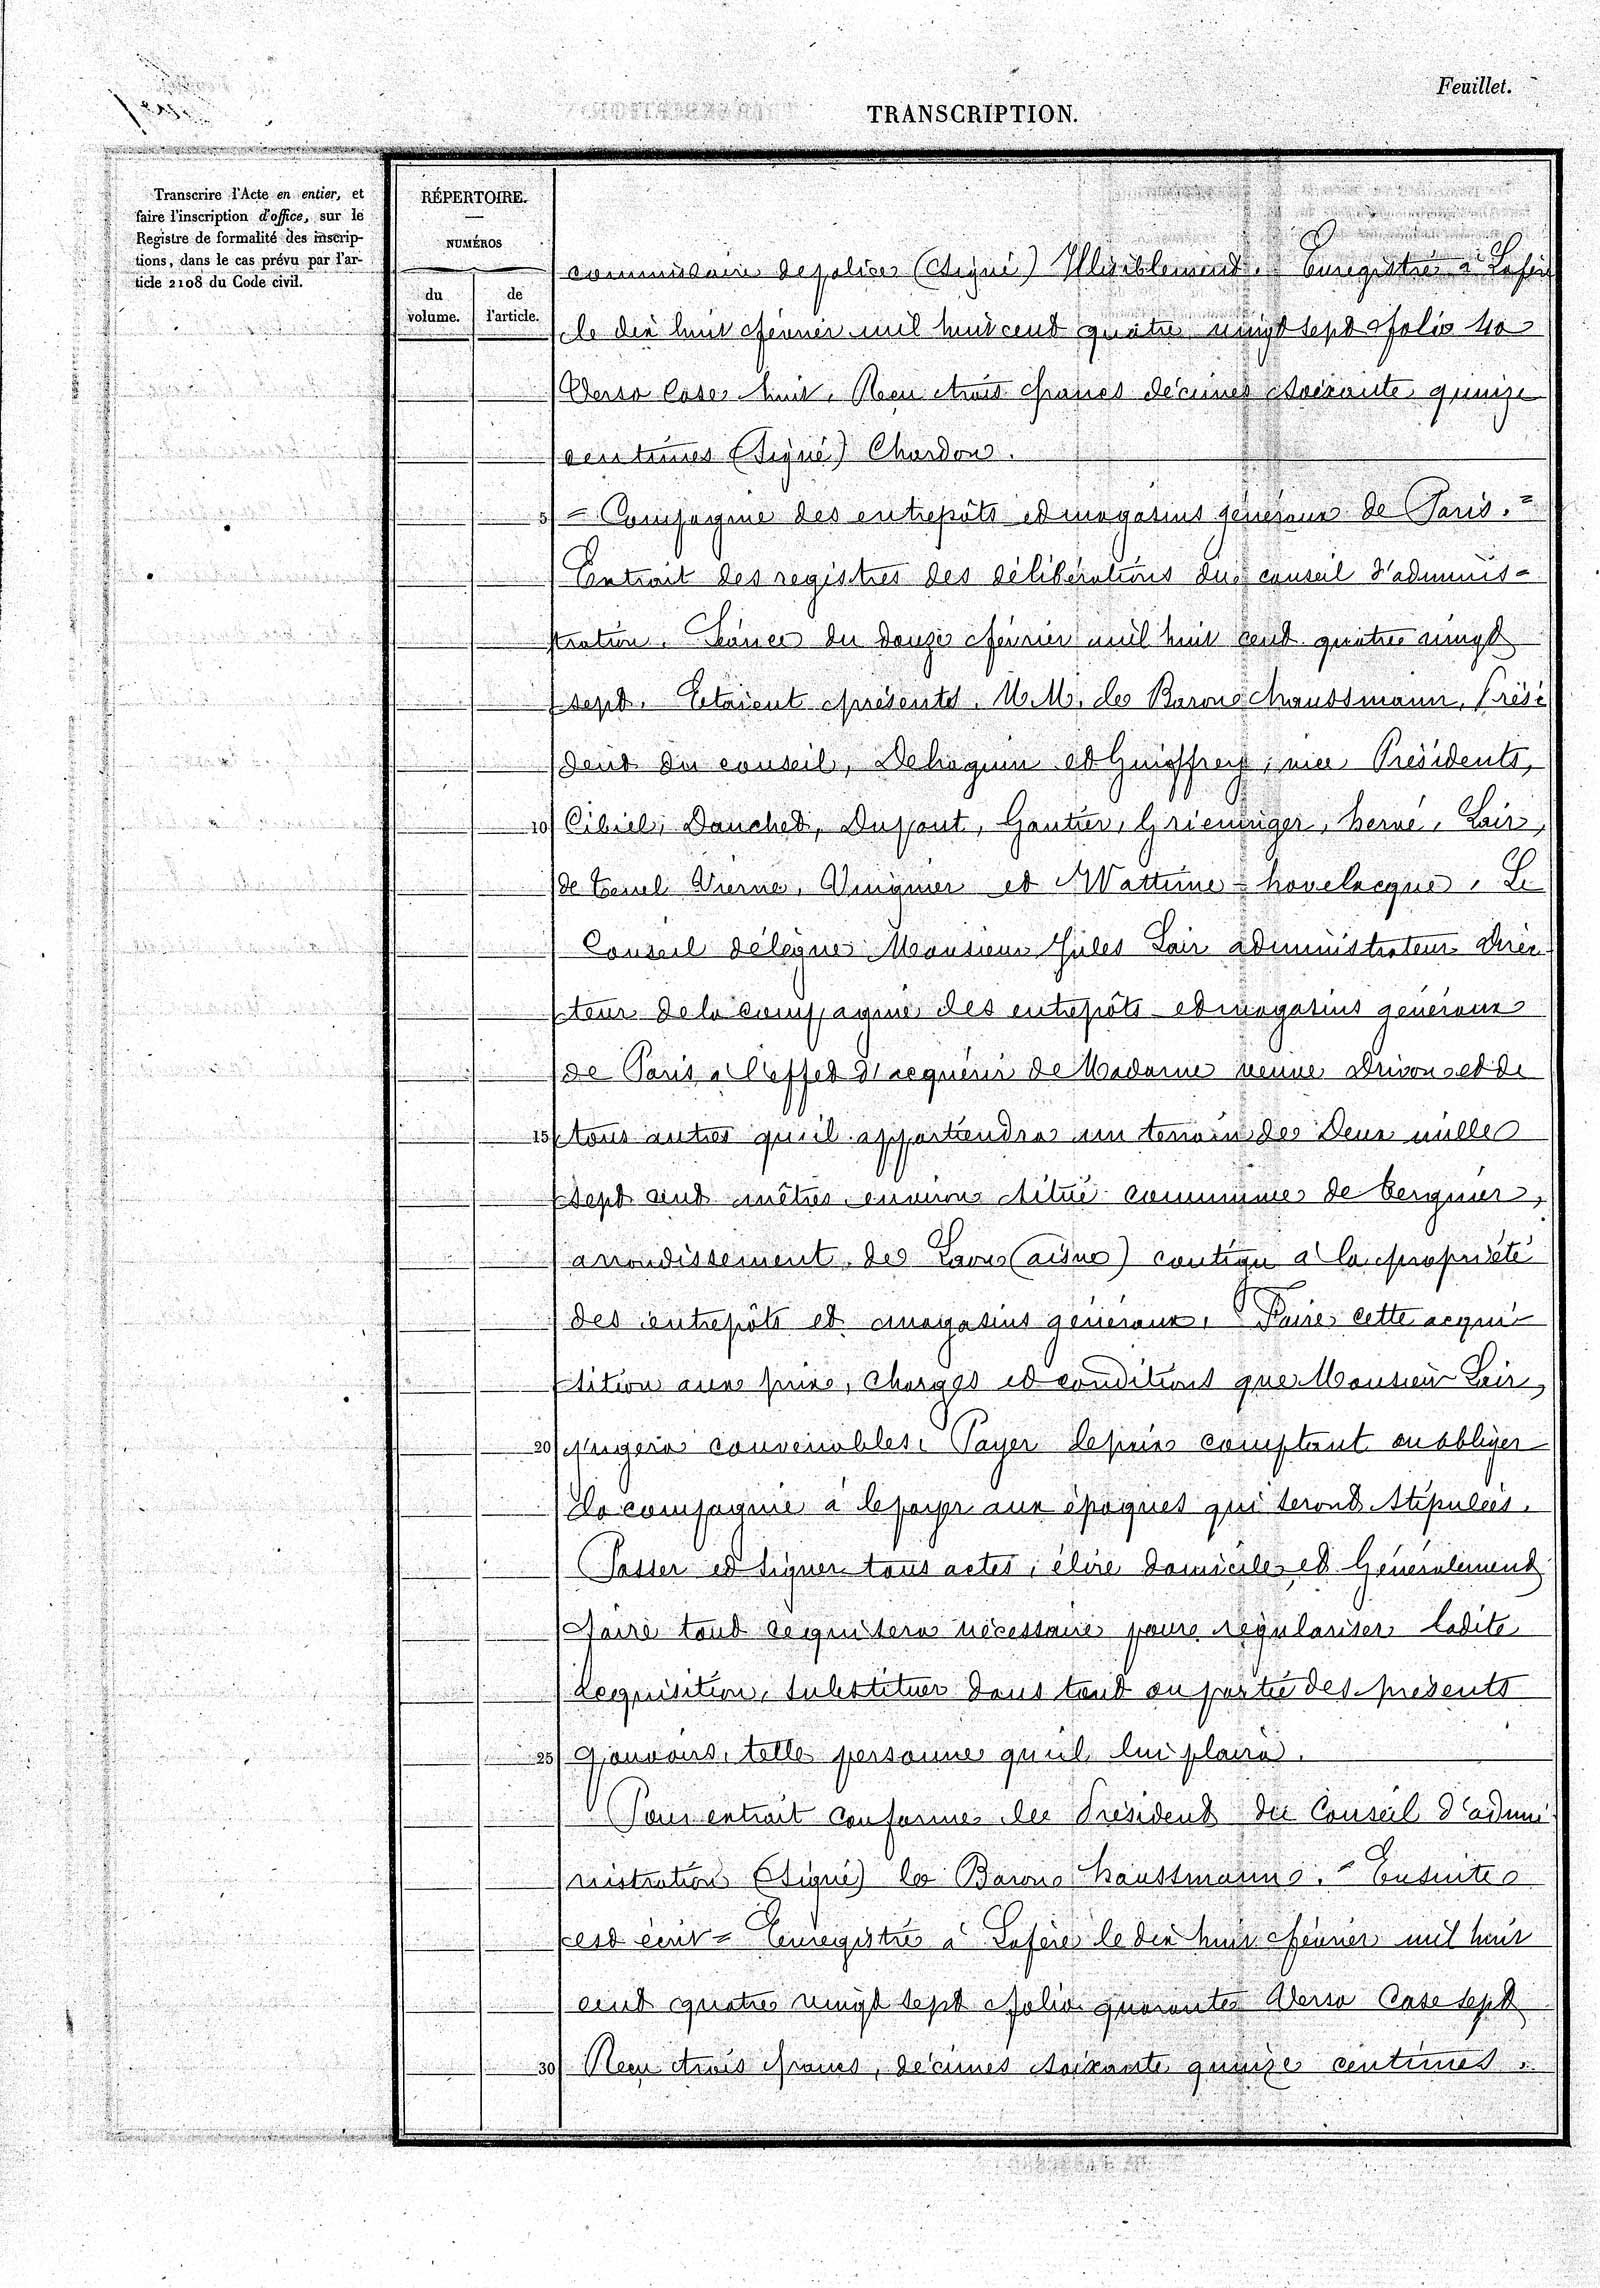 Feuillet.
TRANSCRIPTION.
Transcrire l'Acte en entier, et
faire l'inscription d'office, sur le
Registre de formalité des inscrip-
tions, dans le cas prévu par l'ar-
ticle 2108 du Code civil.
RÉPERTOIRE.
NUMÉROS
du volume.
de l'article.
commissaire de police (Signé) Illisiblement. Enregistré à Lafère
le dix huit février mil huit cent quatre vingt sept folio 40
Verso Case huit. Reçu trois francs décimes soixante quinze
centimes (Signé) Chardon.
5 = Compagnie des entrepôts et magasins généraux de Paris. =
Extrait des registres des délibérations du conseil d'adminis=
tration. Séance du douze février mil huit cent quatre vingt
sept. Etaient présents. M.M. le Baron haussmann, Prési
dent du conseil, Dehaynin et Guiffrey, vice Présidents,
10 Cibiel, Dauchez, Dupont, Gautier, Grieninger, hervé, Lair,
de Vierne, Vuignier et Watinne = hovelacque. Le
Conseil délègue Monsieur Jules Lair administrateur direc
teur de la compagnie des entrepôts et magasins généraux
de Paris a l'effet d'acquérir de Madame veuve Drivon et de
15 tous autres qu'il appartiendra un terrain de Deux mille
sept cent mètres environ situé commune de Tergnier,
arrondissement de Laon (aisne) contigu à la propriété
des entrepôts et magasins généraux. Faire cette acqui=
sition aux prix, charges et conditions que Monsieur Lair,
20 jugera convenables. Payer le prix comptant ou obliger
la compagnie à le payer aux époques qui seront stipulées.
Passer et signer tous actes, élire domicile et Généralement
faire tout ce qui sera nécessaire pour régulariser ladite
acquisition, substituer dans tout ou partie des présents
25 pouvoirs, telle personne qu'il lui plaira.
Pour extrait conforme le Président du Conseil d'admi
nistration (Signé) le Baron haussmann. = Ensuite
est écrit = Enregistré à Lafère le dix huit février mil huit
cent quatre vingt sept folio quarante Verso Case sept
30 Reçu trois francs, décimes soixante quinze centimes.